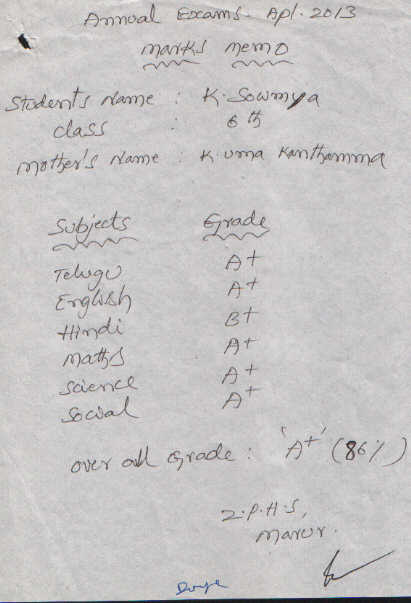 Annual Exams. Apl. 2013
marks memo
Student's Name : K. Sowmya
class : 6 th
mother's Name : K. uma Kanthamma
Subjects Grade
Telugu A+
English A+
Hindi B+
maths A+
science A+
social A+
over all Grade : 'A+' (86%)
Z.P.H.S,
marur.